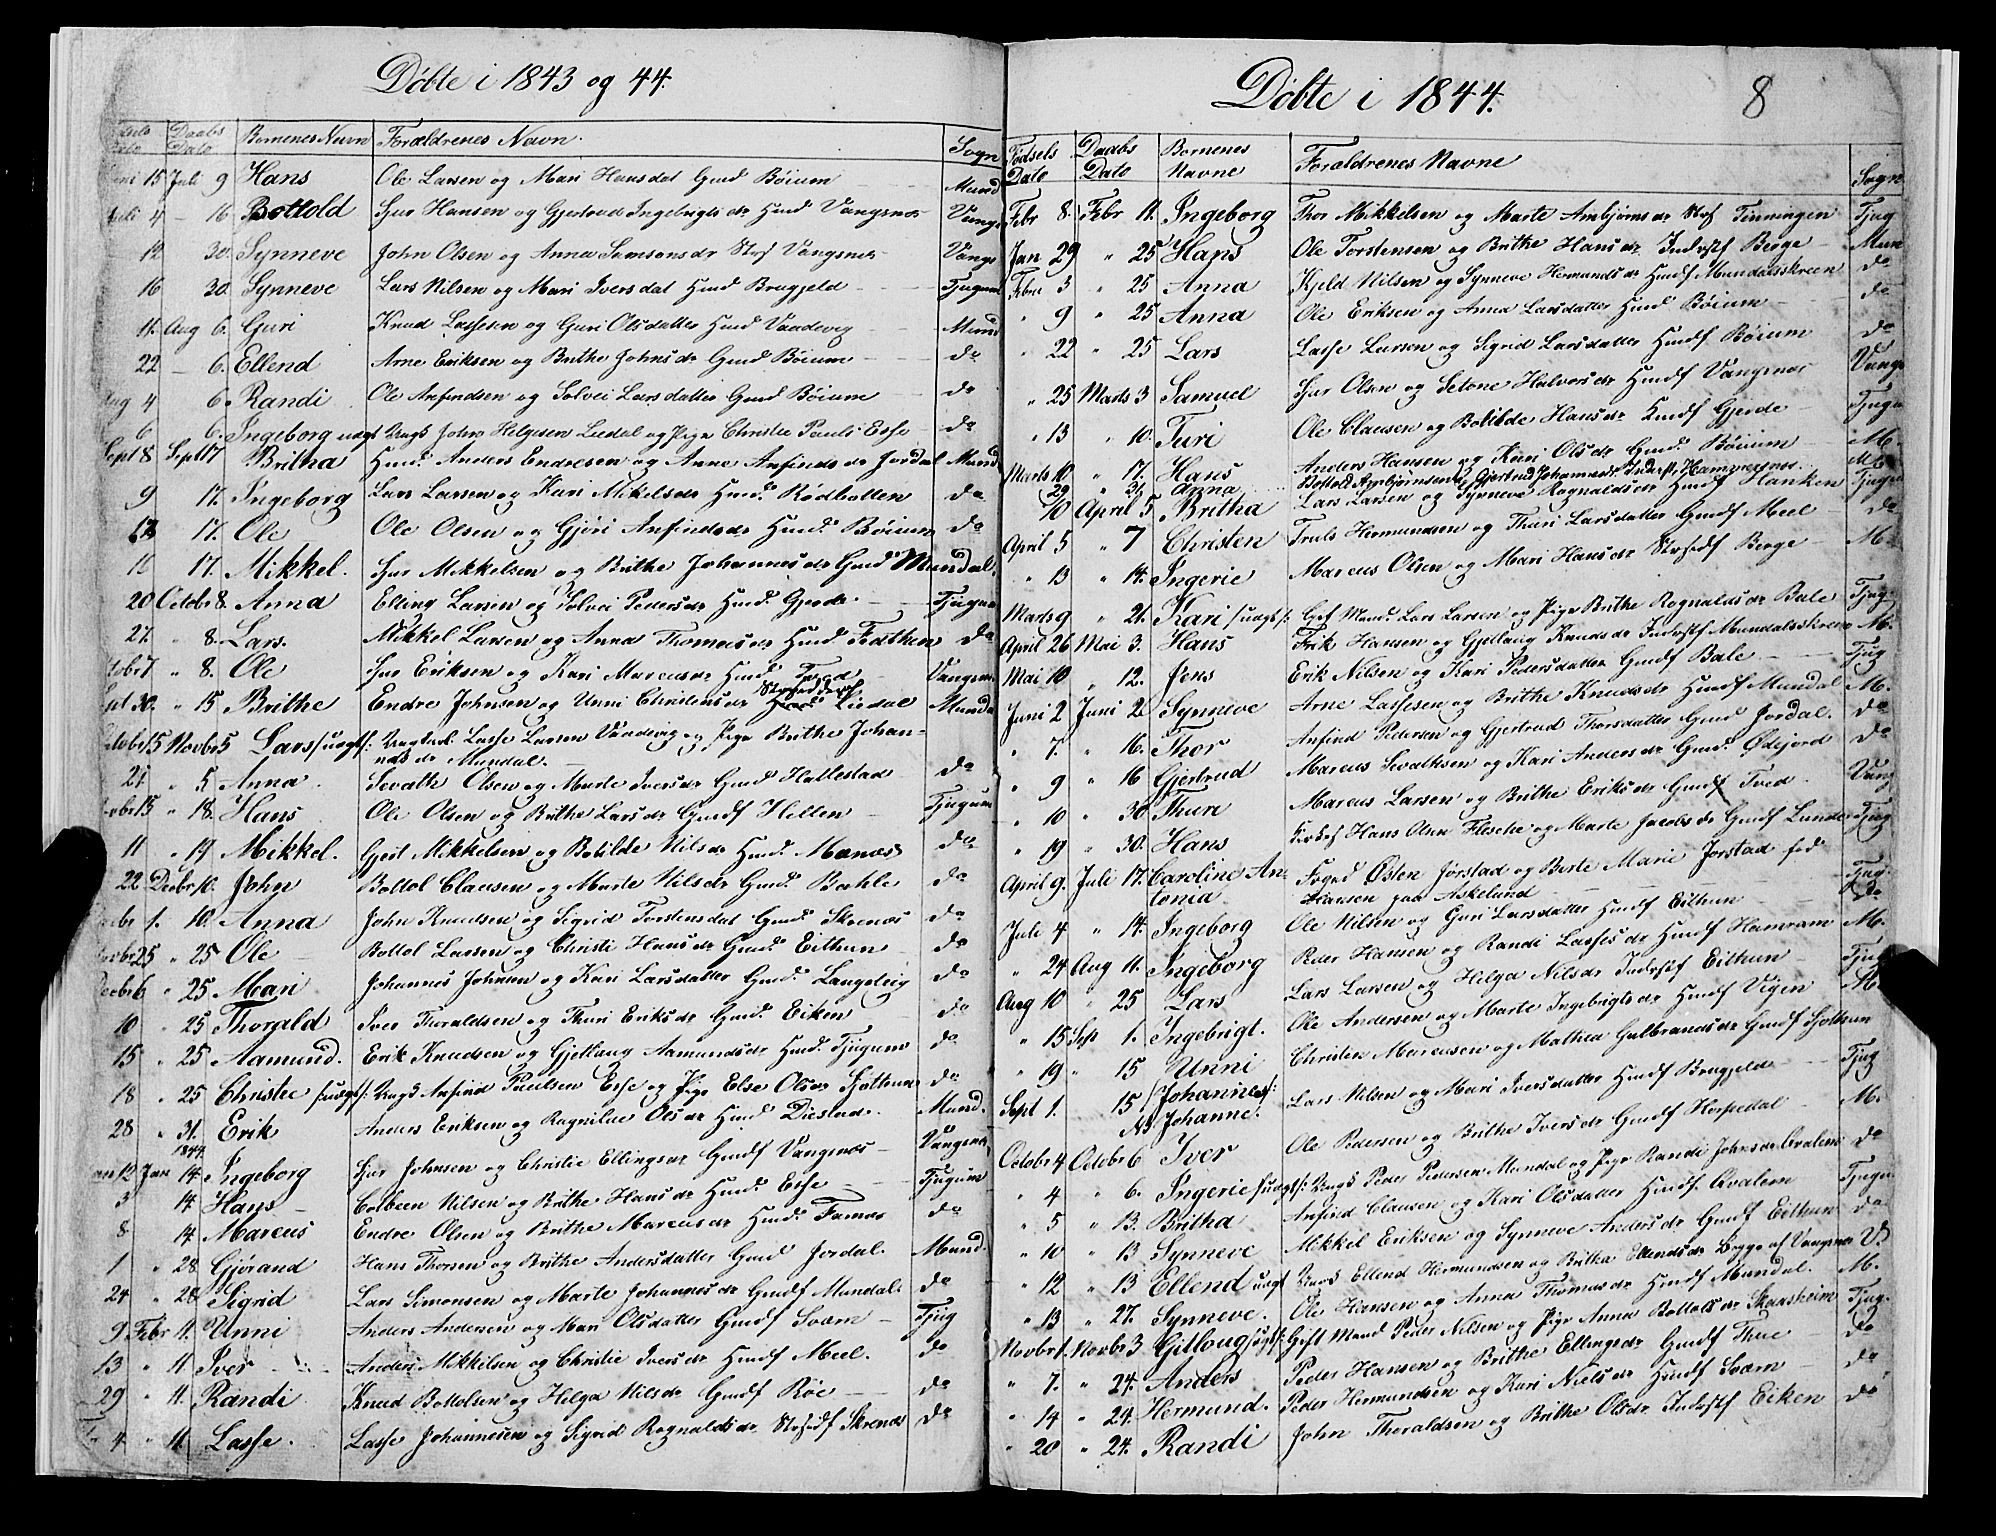 Döbte i 1843 og 44.
Dato Daabs Dato Bornenes Navn Forældrenes Navn. Sogn
15 Juli 9 Hans Ole Larsen og Mari Hansdat Gmd Böium Mund
4 — 16 Bottold Sjur Hansen og Gjertrud Ingebrigtsdr Hmd Vangsnæs Vangs
12 30. Synneve John Olsen og Anna Samsonsdr Vangsnes Vangs
16 30. Synneve Lars Nilsen og Mari Iversdat Hmd Brugjeld Tjugum
11. Aug 6. Guri Knud Lassesen og Guri Olsdatter Hmd Vandevig Mund
22 — 6. Ellend Arne Eriksen og Brithe Johnsdr Gmd Böium do
Aug 4 6. Randi Ole Anfindsen og Solvei Larsdatter Gmd Böium do
6 6. Ingeborg uægt Ungk John Helgesen Liedal og Pige Christie Pauls Esse do
Sept 8 Sept 17 Britha Hmd. Anders Endresen og Anne Anfindsdr Jordal Mund
9 17. Ingeborg Lars Larsen og Kari Mikelsdr Hmd. Rödbotten do
12 17. Ole Ole Olsen og Gjöri Anfindsdr Hmd. Böium do
16 17. Mikkel. Sjur Mikkelsen og Brithe Johannesdr Gmd Mundal.
20 Octbr 8. Anna Elling Larsen og Solvei Pedersdr Hmd. Gjerde Tjugum
27. " 8. Lars. Mikkel Larsen og Anna Thomasdr Hmd Fatthun do
7 " 8. Ole Sjur Eriksen og Kari Marcusdr Hmd. Tved Vangsnes
30. " 15 Brithe Endre Johnsen og Unni Christensdr Liedal Munda
15 Novbr 5 Lars /:uægt:/ Ungkal: Lasse Larsen Vandevig og Pige Brithe Johan-
nesdr Mundal.
21 " 5. Anna Sevath Olsen og Marte Iversdr Gmd Hattestad do
15 " 18. Hans Ole Olsen og Brithe Larsdr Gmdf Hellen Tjugum
11 " 19 Mikkel. Gert Mikkelsen og Botilde Nilsdr Hmd. Menæs do
22 Decbr 10. John Bottol Clausen og Marte Nilsdr Gmd. Bahle do
1. 10. Anna John Knudsen og Sigrid Torstensdat Gmd. Skrenæs do
25 " 25 Ole Bottol Larsen og Christi Hansdr Gmd Eithun do
Decbr 6 " 25 Mari Johannes Johnsen og Kari Larsdatter Gmd. Langedeig do
10 " 25 Thorald Iver Thoraldsen og Thuri Eriksdr Gmd. Eiken do
15 " 25 Aamund. Erik Knudsen og Gjetlaug Aamundsdr Hmd. Tjugum do
18 " 25 Christie /:uægt:/ Ungk Anfind Paulsen Esse og Pige Else Olsdr Sjöttun do
28 " 31. Erik Anders Eriksen og Ragnilde Olsdr Hmd Distad. Mund.
1844
12 Jan 14 Ingeborg Sjur Johnsen og Christie Ellingsdr Gmdf Vangsnæs Vangsnes
3 14 Hans Colbeen Nilsen og Brithe Hansdr Hmd. Esse Tjugum
8 14 Marcus Endre Olsen og Brithe Marcusdr Hmd. Farnæs do
1 " 28 Gjörand Hans Thorsen og Brithe Andersdatter Gmd Jordal. Mund.
24 " 28 Sigrid Lars Simonsen og Marte Johannesdr Gmdf Mundal. do
9 Febr 11. Unni Anders Andersen og Mari Olsdatter Gmdf Sværn Tjug
13 " 11. Iver Anders Mikkelsen og Christie Iversdr Hmdf Meel. do
29 " 11. Randi Knud Bottolsen og Helga Nilsdr Gmdf Röe do
4 " 11. Lasse. Lasse Johannesen og Sigrid Ragnaldsdr Skrenæs do
Döbte i 1844. 8
Födsels Dato Daabs Dato Bornenes Navne Forældrenes Navne Sogn
Febr 8. Febr 11. Ingeborg Thor Mikkelsen og Marte Arnbjörnsdr Tinningen Tjug
Jan 29 " 25 Hans Ole Torstensen og Brithe Hansdr Inderstf Berge Mun
Febru 3 " 25 Anna Kjeld Nilsen og Synneve Hermundsdr Hmdf Mundalsskreen do
" 9 " 25 Anna Ole Eriksen og Anna Larsdatter Hmd Böium do
" 22 " 25 Lars Lasse Larsen og Sigrid Larsdatter Hmdf Böium do
" 25 Marts 3 Samuel Sjur Olsen og Setone Halvorsdr Hmdf Vangsnæs Vangs
" 13 " 10. Turi Ole Clausen og Botilde Hansdr Hmdf Gjerde Tjugu
Marts 10 " 17. Hans Anders Hansen og Kari Olsdr Gmd. Böium M.
29 " 31 Anna Bottold Arnbjörnsen og Gjertrud Johannesdr Inderst. Hamrenæs. M.
10 April 5 Britha Lars Larsen og Synneve Ragnaldsdr Hmdf Hanken Tjugu
April 5 " 7 Christen Truls Hermundsen og Thuri Larsdatter Gmdf Meel do
" 13 " 14. Ingerie Marcus Olsen og Mari Hansdr Berge M.
Marts 9 " 21. Kari /:uægt:/ Gift Mand Lars Larsen og Pige Brithe Ragnaldsdr Bale Tjug
April 26 Mai 3. Hans Erik Hansen og Gjetlaug Knudsdr Inderstf Mundalsskreen M.
Mai 10 " 12. Jens Erik Nilsen og Kari Pedersdatter Gmdf Bale Tjug
Juni 2 Juni 2 Synneve Arne Lassesen og Brithe Knudsdr Hmdf Mundal M.
" 7. " 16. Thor Anfind Pedersen og Gjertrud Thorsdatter Gmd Jordal. do
" 9 " 16 Gjertrud Marcus Sevathsen og Kari Andersdr Gmd. Ödejord do
" 10 " 30 Thuri Marcus Larsen og Brithe Eriksdr Gmdf Tved Vang
" 19 " 30. Hans Hans Olsen Flesche og Marte Jacobsdr Gmdf Lunde Tjug
April 9. Juli 17. Caroline An- Foged Östen Jörstad og Berte Marie Jorstad fød Tjug.
tonia. Hansen paa Askelund do
Juli 4 " 14. Ingeborg Ole Nilsen og Guri Larsdatter Hmdf Eithun
" 24 Aug 11. Ingeborg Peder Hansen og Randi Lassesdr Hmdf Hamrum M.
Aug 10 " 25 Lars Lars Larsen og Helga Nilsdr Inderstf Eithun Tjug
" 15 Sep 1. Ingebrigt. Ole Andersen og Marte Ingebrigtsdr Hmdf Vigen M.
" 19 " 15 Unni Christen Marcusen og Mathea Gulbrandsdr Gmdf Sjöthun
Sept 1. 15 /Johannes/: Lars Nilsen og Mari Iversdatter Hmdf Brugjeld Tjug
NB Johanne.
Octobr 4 Octobr 6 Iver Ole Pedersen og Brithe Iversdr Gmdf Horpedal M.
" 4 " 6. Ingerie /:uægt:/ Ungk Peder Pedersen Mundal og Pige Randi Johnsdr Qvalem do
" 5 " 13. Britha Anfind Clausen og Kari Olsdatter Hmdf. Qvalem Tjugu
" 10 " 13 Synneve Mikkel Eriksen og Synneve Andersdr Gmdf Eithun do
" 12 " 13 Ellend uægt Ungk Ellend Hermundsen og Britha Ellendsdr Brygge af Vangsnes V.
" 13 " 27. Synneve. Ole Hansen og Anna Thomasdr Hmdf Mundal. M.
Novbr 1. Novbr 3 Gitloug /:uægt:/ Gift Mand Peder Nilsen og Pige Anna Bottolsdr Skaasheim Tjug.
" 7. " 24. Anders Peder Hansen og Brithe Ellingsdr Gmdf Thue do
" 14 " 24. Hermund. Peder Hermundsen og Kari Nielsdr Hmdf Sværn do
" 20 " 24. Randi John Thoraldsen og Brithe Olsdr Inderstf Eiken do